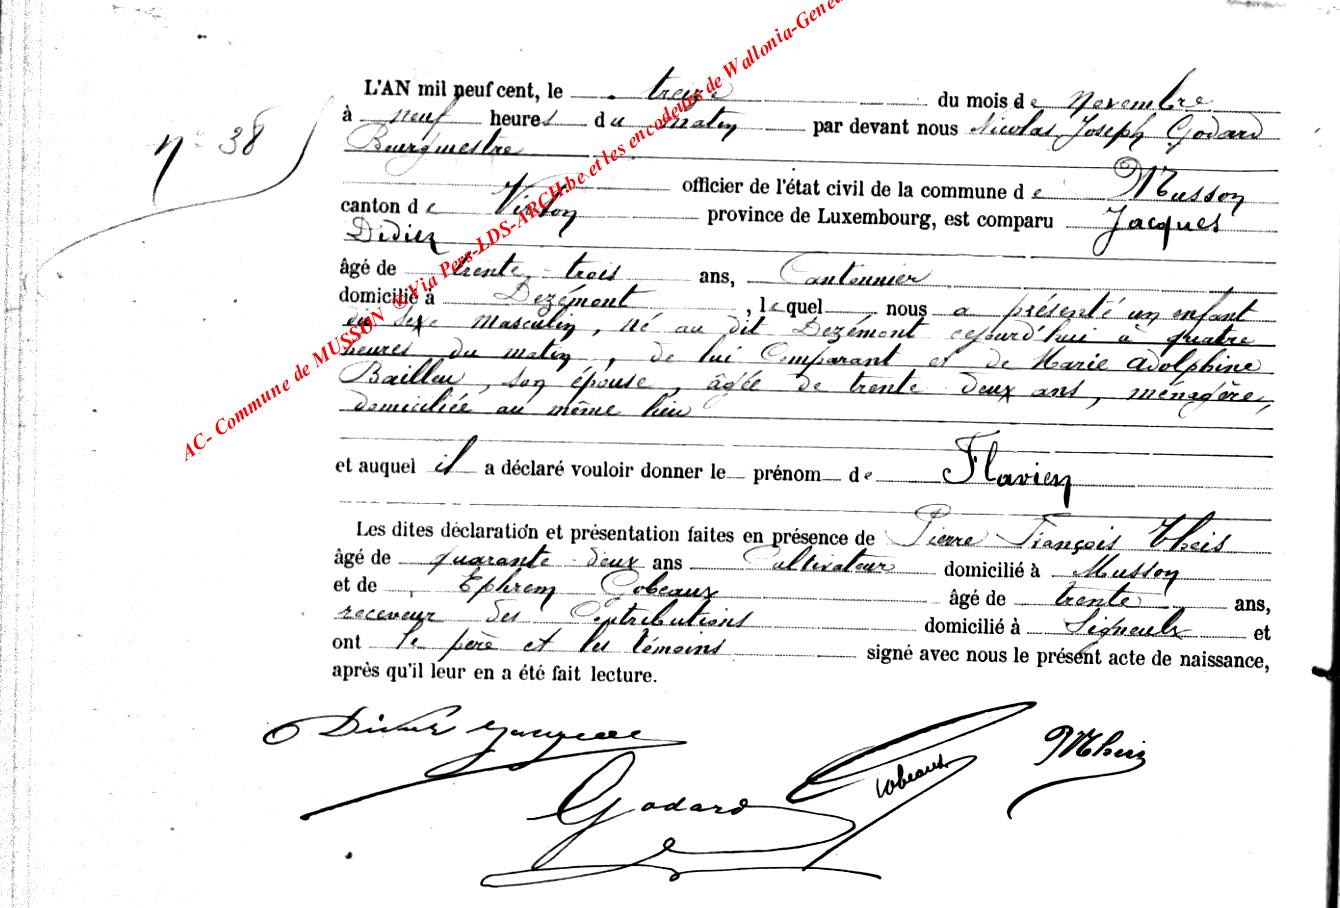 AC- Commune de MUSSON ®Via Pers-LDS-ARCH.be et les encodeurs de Wallonia-Genea
n° 38
L'AN mil neuf cent, le treize du mois de Novembre
à neuf heures du matin par devant nous Nicolas Joseph Godard
Bourgmestre
officier de l'état civil de la commune de Musson
canton de Virton province de Luxembourg, est comparu Jacques
Didier
âgé de trente trois ans, Cantonnier
domicilié à Dezémont, lequel nous a présenté un enfant
du sexe masculin, né au dit Dezémont cejourd'hui à quatre
heures du matin, de lui Comparant et de Marie Adolphine
Bailleu, son épouse, âgée de trente deux ans, ménagère,
domiciliée au même lieu
et auquel il a déclaré vouloir donner le prénom de Flavien
Les dites déclaration et présentation faites en présence de Pierre François Theis
âgé de quarante deux ans Cultivateur domicilié à Musson
et de Ephrem Gobeaux âgé de trente ans,
receveur des Contributions domicilié à Signeulx et
ont le père et les témoins signé avec nous le présent acte de naissance,
après qu'il leur en a été fait lecture.
Didier Jacques
Godard
Gobeaux
Theis